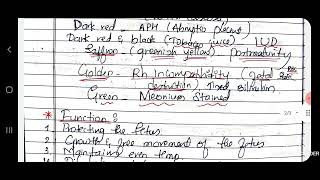 Dark red - APH (Abruptio placenta)
Dark red & black (Tobacco juice) IUD
Saffron - (greenish yellow) postmaturity
Golden - Rh Incompatibility (total RBC
destruction) ↑sed bilirubin
Green - Meconium Stained
* Function :
1. Protecting the fetus
2. Growth & free movement of the fetus
3. Maintains even temp.